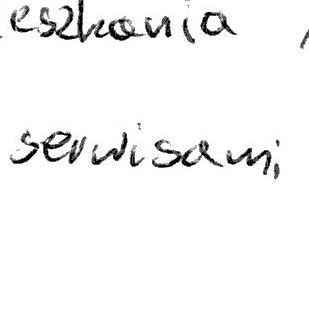 eszkania
serwisami